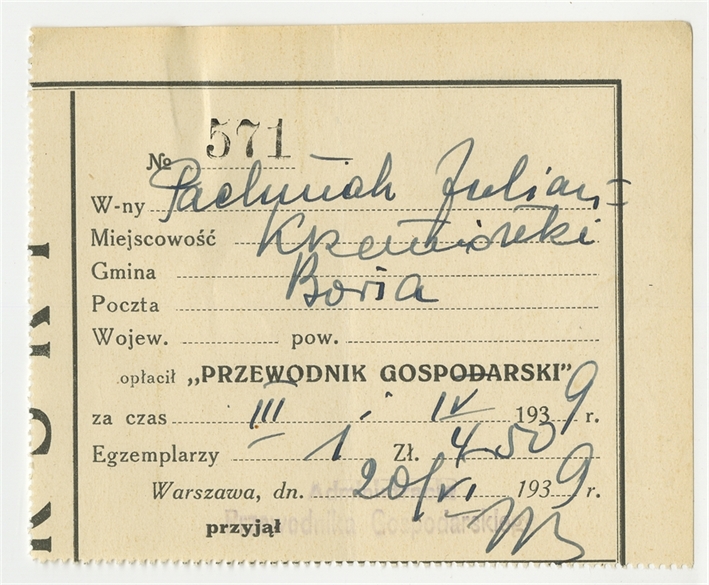 № 571
W-ny Pachniak Julian
Miejscowość
Gmina Boria
Poczta
Wojew. pow.
opłacił „PRZEWODNIK GOSPODARSKI"
za czas III i IV 1939 r.
Egzemplarzy – 1 Zł. 4.50
Warszawa, dn. 20/VI 1939 r.
przyjął
Przewodnika Gospodarskiego